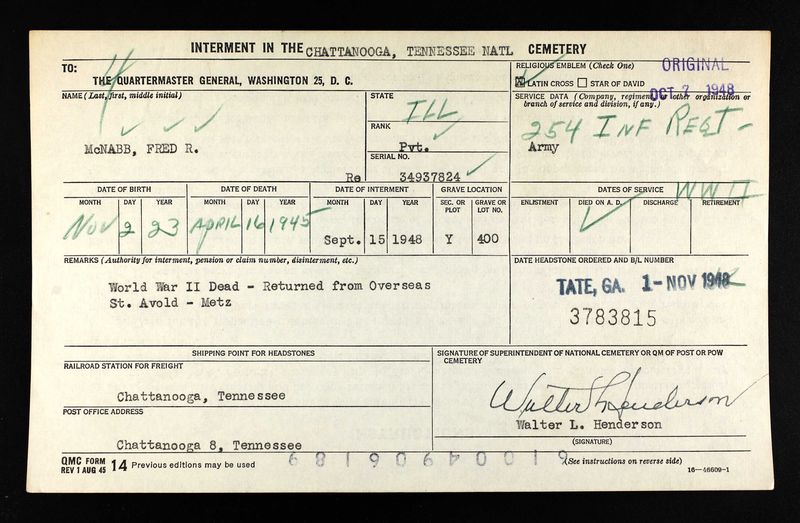 INTERMENT IN THE CHATTANOOGA, TENNESSEE NATL CEMETERY
TO:
THE QUARTERMASTER GENERAL, WASHINGTON 25, D. C.
RELIGIOUS EMBLEM (Check One)
ORIGINAL
LATIN CROSS STAR OF DAVID
OCT 7 1948
NAME (Last, first, middle initial)
McNABB, FRED R.
STATE
ILL
RANK
Pvt.
SERIAL NO.
Re 34937824
SERVICE DATA (Company, regiment, other organization or
branch of service and division, if any.)
254 INF REGT -
Army
DATE OF BIRTH
MONTH DAY YEAR
NOV 2 23
DATE OF DEATH
MONTH DAY YEAR
APRIL 16 1945
DATE OF INTERMENT
MONTH DAY YEAR
Sept. 15 1948
GRAVE LOCATION
SEC. OR PLOT
GRAVE OR LOT NO.
Y 400
DATES OF SERVICE
WW II
ENLISTMENT DIED ON A. D. DISCHARGE RETIREMENT
REMARKS (Authority for interment, pension or claim number, disinterment, etc.)
World War II Dead - Returned from Overseas
St. Avold - Metz
DATE HEADSTONE ORDERED AND B/L NUMBER
TATE, GA. 1-NOV 1948
3783815
SHIPPING POINT FOR HEADSTONES
RAILROAD STATION FOR FREIGHT
Chattanooga, Tennessee
POST OFFICE ADDRESS
Chattanooga 8, Tennessee
SIGNATURE OF SUPERINTENDENT OF NATIONAL CEMETERY OR QM OF POST OR POW
CEMETERY
Walter L. Henderson
Walter L. Henderson
(SIGNATURE)
QMC FORM
REV 1 AUG 45 14 Previous editions may be used
(See instructions on reverse side)
16—46609-1